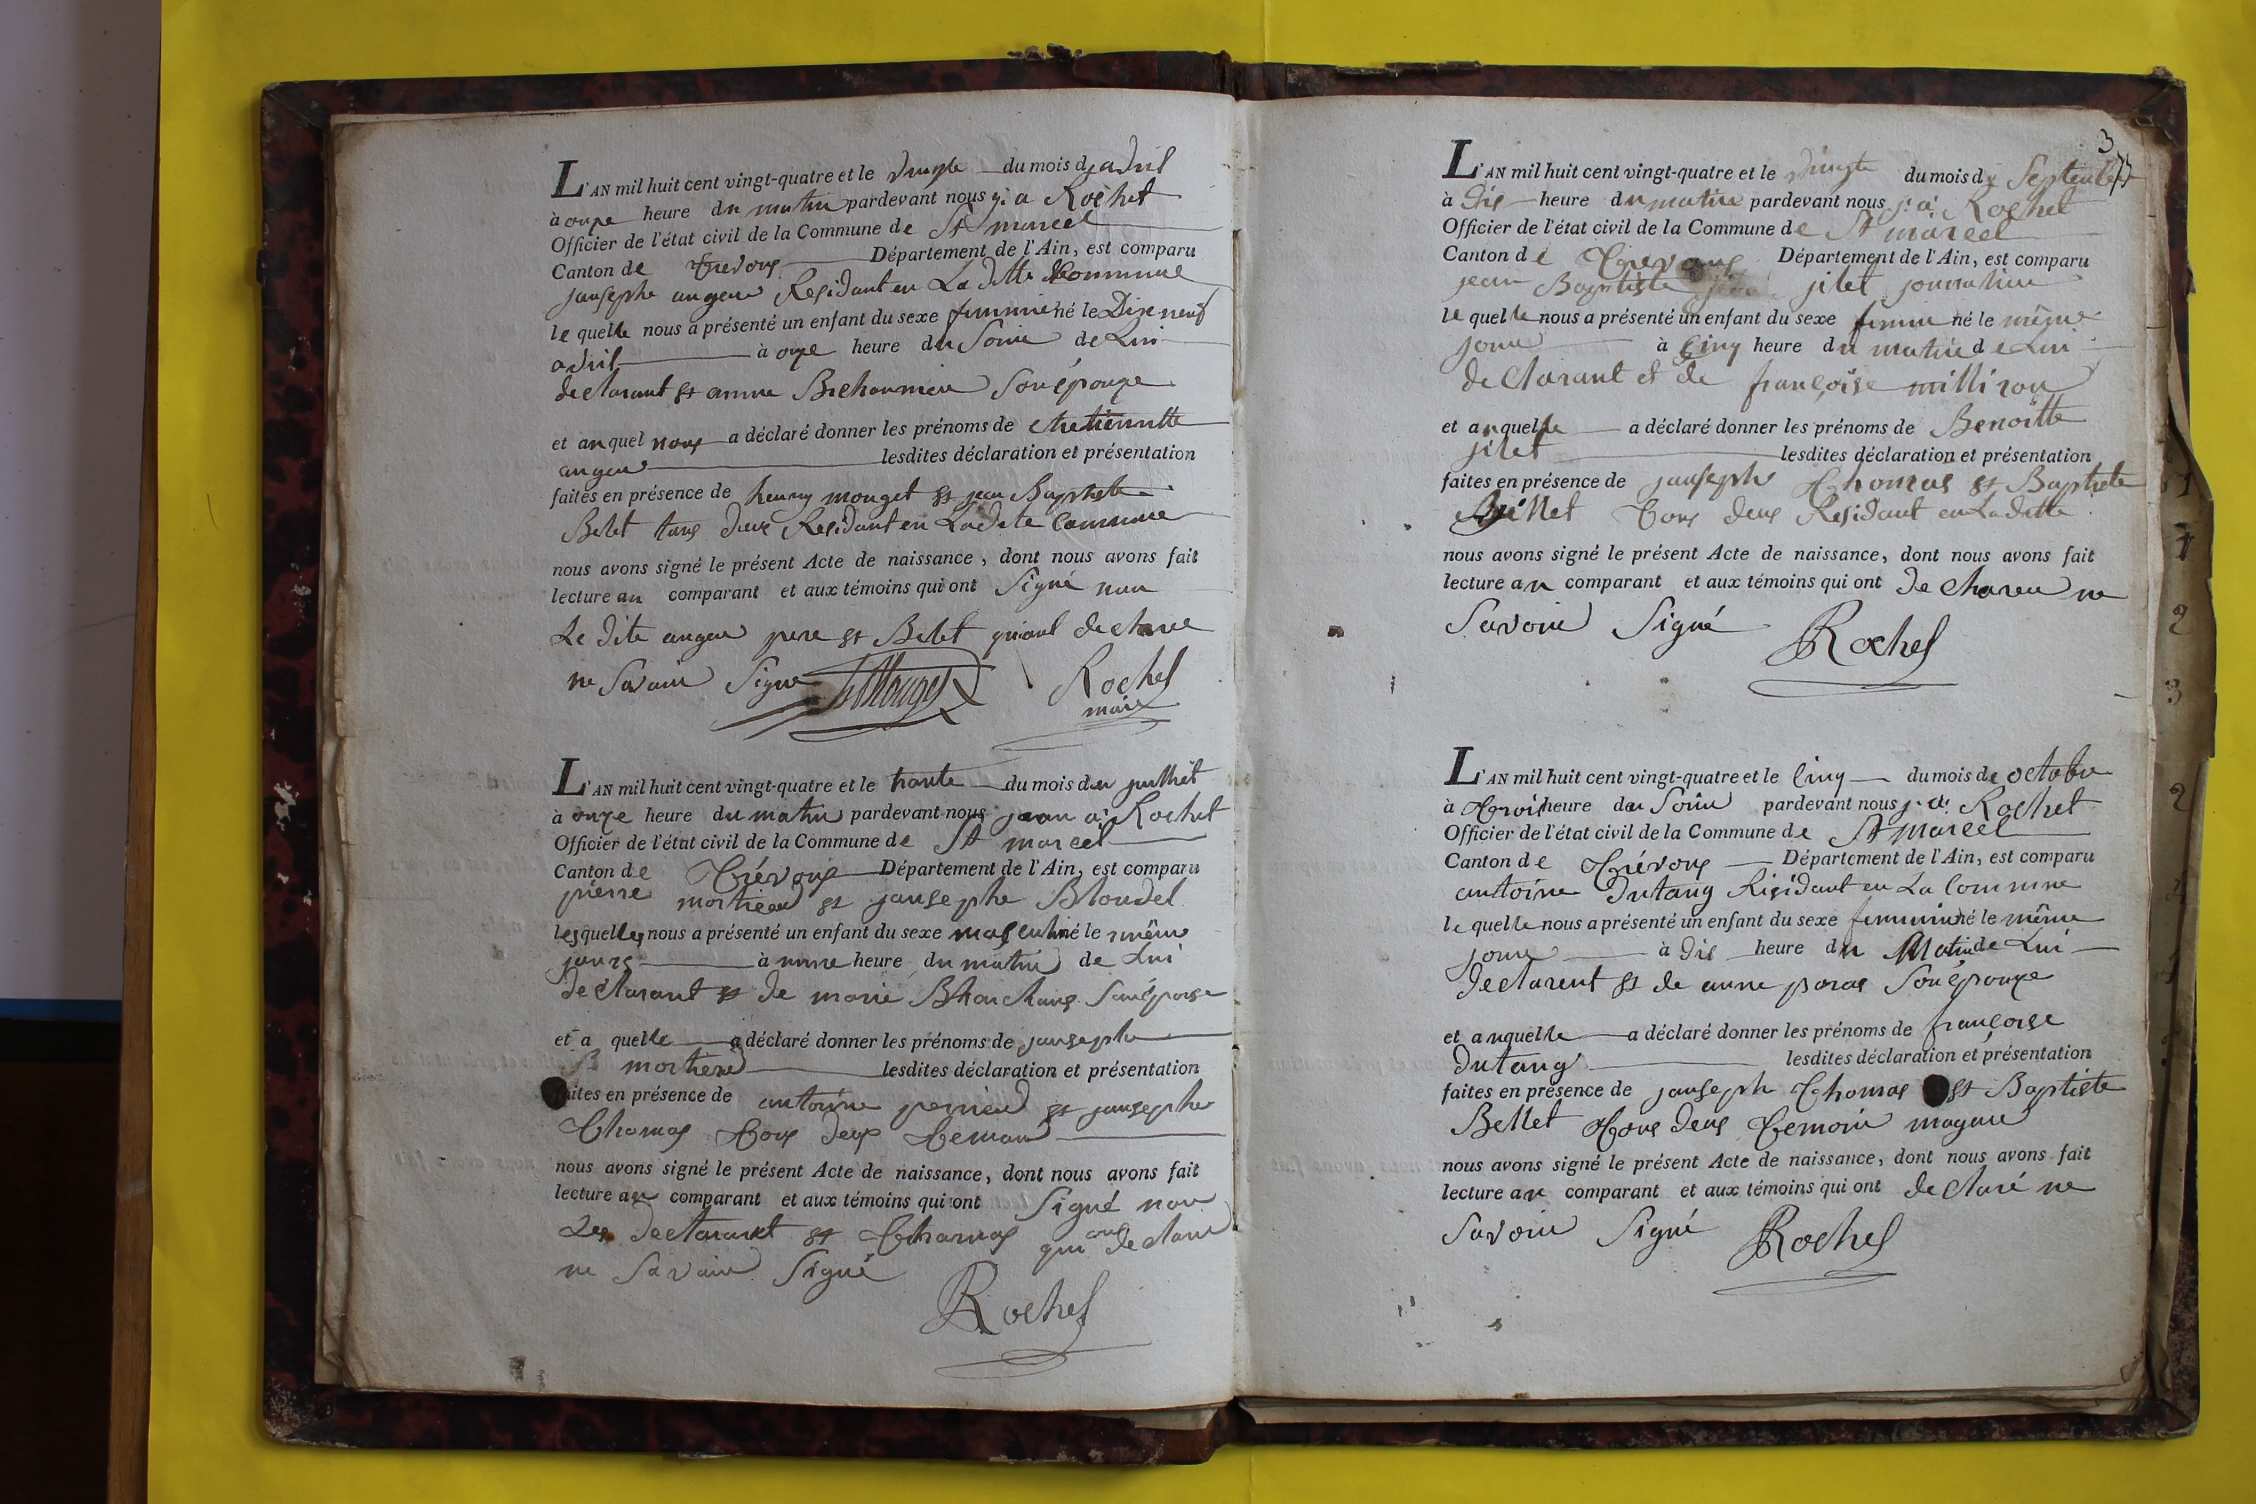 L'AN mil huit cent vingt-quatre et le vingte du mois de avril
à onze heure du matin pardevant nous j. a Rochet
Officier de l'état civil de la Commune de St marcel
Canton de Trevoux Département de l'Ain, est comparu
jausephe angeu Residant en La ditte Commune
le quelle nous a présenté un enfant du sexe feminin né le Dixneuf
avril à onze heure du Soire de Lui
declarant et anne Son épouze
et auquel nous a déclaré donner les prénoms de
angeu lesdites déclaration et présentation
faites en présence de henry mouget et jean Baptiste
Belet tous deux Residant en Ladite Commune
nous avons signé le présent Acte de naissance, dont nous avons fait
lecture au comparant et aux témoins qui ont Signé non
Le dite angeu pere et Belet qui ont declare
ne Savoir Signe hMouget Rochet
maire
L'AN mil huit cent vingt-quatre et le trante du mois de juilliet
à onze heure du matin pardevant nous jean a. Rochet
Officier de l'état civil de la Commune de St marcel
Canton de Trévoux Département de l'Ain, est comparu
pierre et jausephe Blondel
lesquelles nous a présenté un enfant du sexe masculin né le même
jours à unne heure du matin de Lui
declarant et de marie Son épouse
et a quelle a déclaré donner les prénoms de jausephe
lesdites déclaration et présentation
faites en présence de antoine perried et jausephe
Thomas Tous deux Temoin
nous avons signé le présent Acte de naissance, dont nous avons fait
lecture au comparant et aux témoins qui ont Signé non
Les declarant et Thomas qui ont declaré
ne Savoir Signé
Rochet
3
77
L'AN mil huit cent vingt-quatre et le vingte du mois de Septembre
à Dis heure du matin pardevant nous j. a. Rochet
Officier de l'état civil de la Commune de St marcel
Canton de Trevoux Département de l'Ain, est comparu
jean Baptiste jilet
le quelle nous a présenté un enfant du sexe feminin né le même
jour à Cinq heure du matin de Lui
declarant et de françoise milliron
et auquelle a déclaré donner les prénoms de Benoitte
jilet lesdites déclaration et présentation
faites en présence de jauseph Thomas et Baptiste
Tous deus Residant en La ditte
nous avons signé le présent Acte de naissance, dont nous avons fait
lecture au comparant et aux témoins qui ont declareu ne
Savoir Signé Rochet
L'AN mil huit cent vingt-quatre et le Cinq du mois de octobre
à Trois heure du Soire pardevant nous j. a. Rochet
Officier de l'état civil de la Commune de St Marcel
Canton de Trévoux Département de l'Ain, est comparu
antoine Dutang Risidant en La Commune
le quelle nous a présenté un enfant du sexe feminin né le même
jour à Dis heure du Matin de Lui
declarent et de anne Son épouze
et auquelle a déclaré donner les prénoms de françoise
Dutang lesdites déclaration et présentation
faites en présence de jauseph Thomas et Baptiste
Bellet Tous deus Temoin
nous avons signé le présent Acte de naissance, dont nous avons fait
lecture au comparant et aux témoins qui ont declaré ne
Savoir Signé Rochet